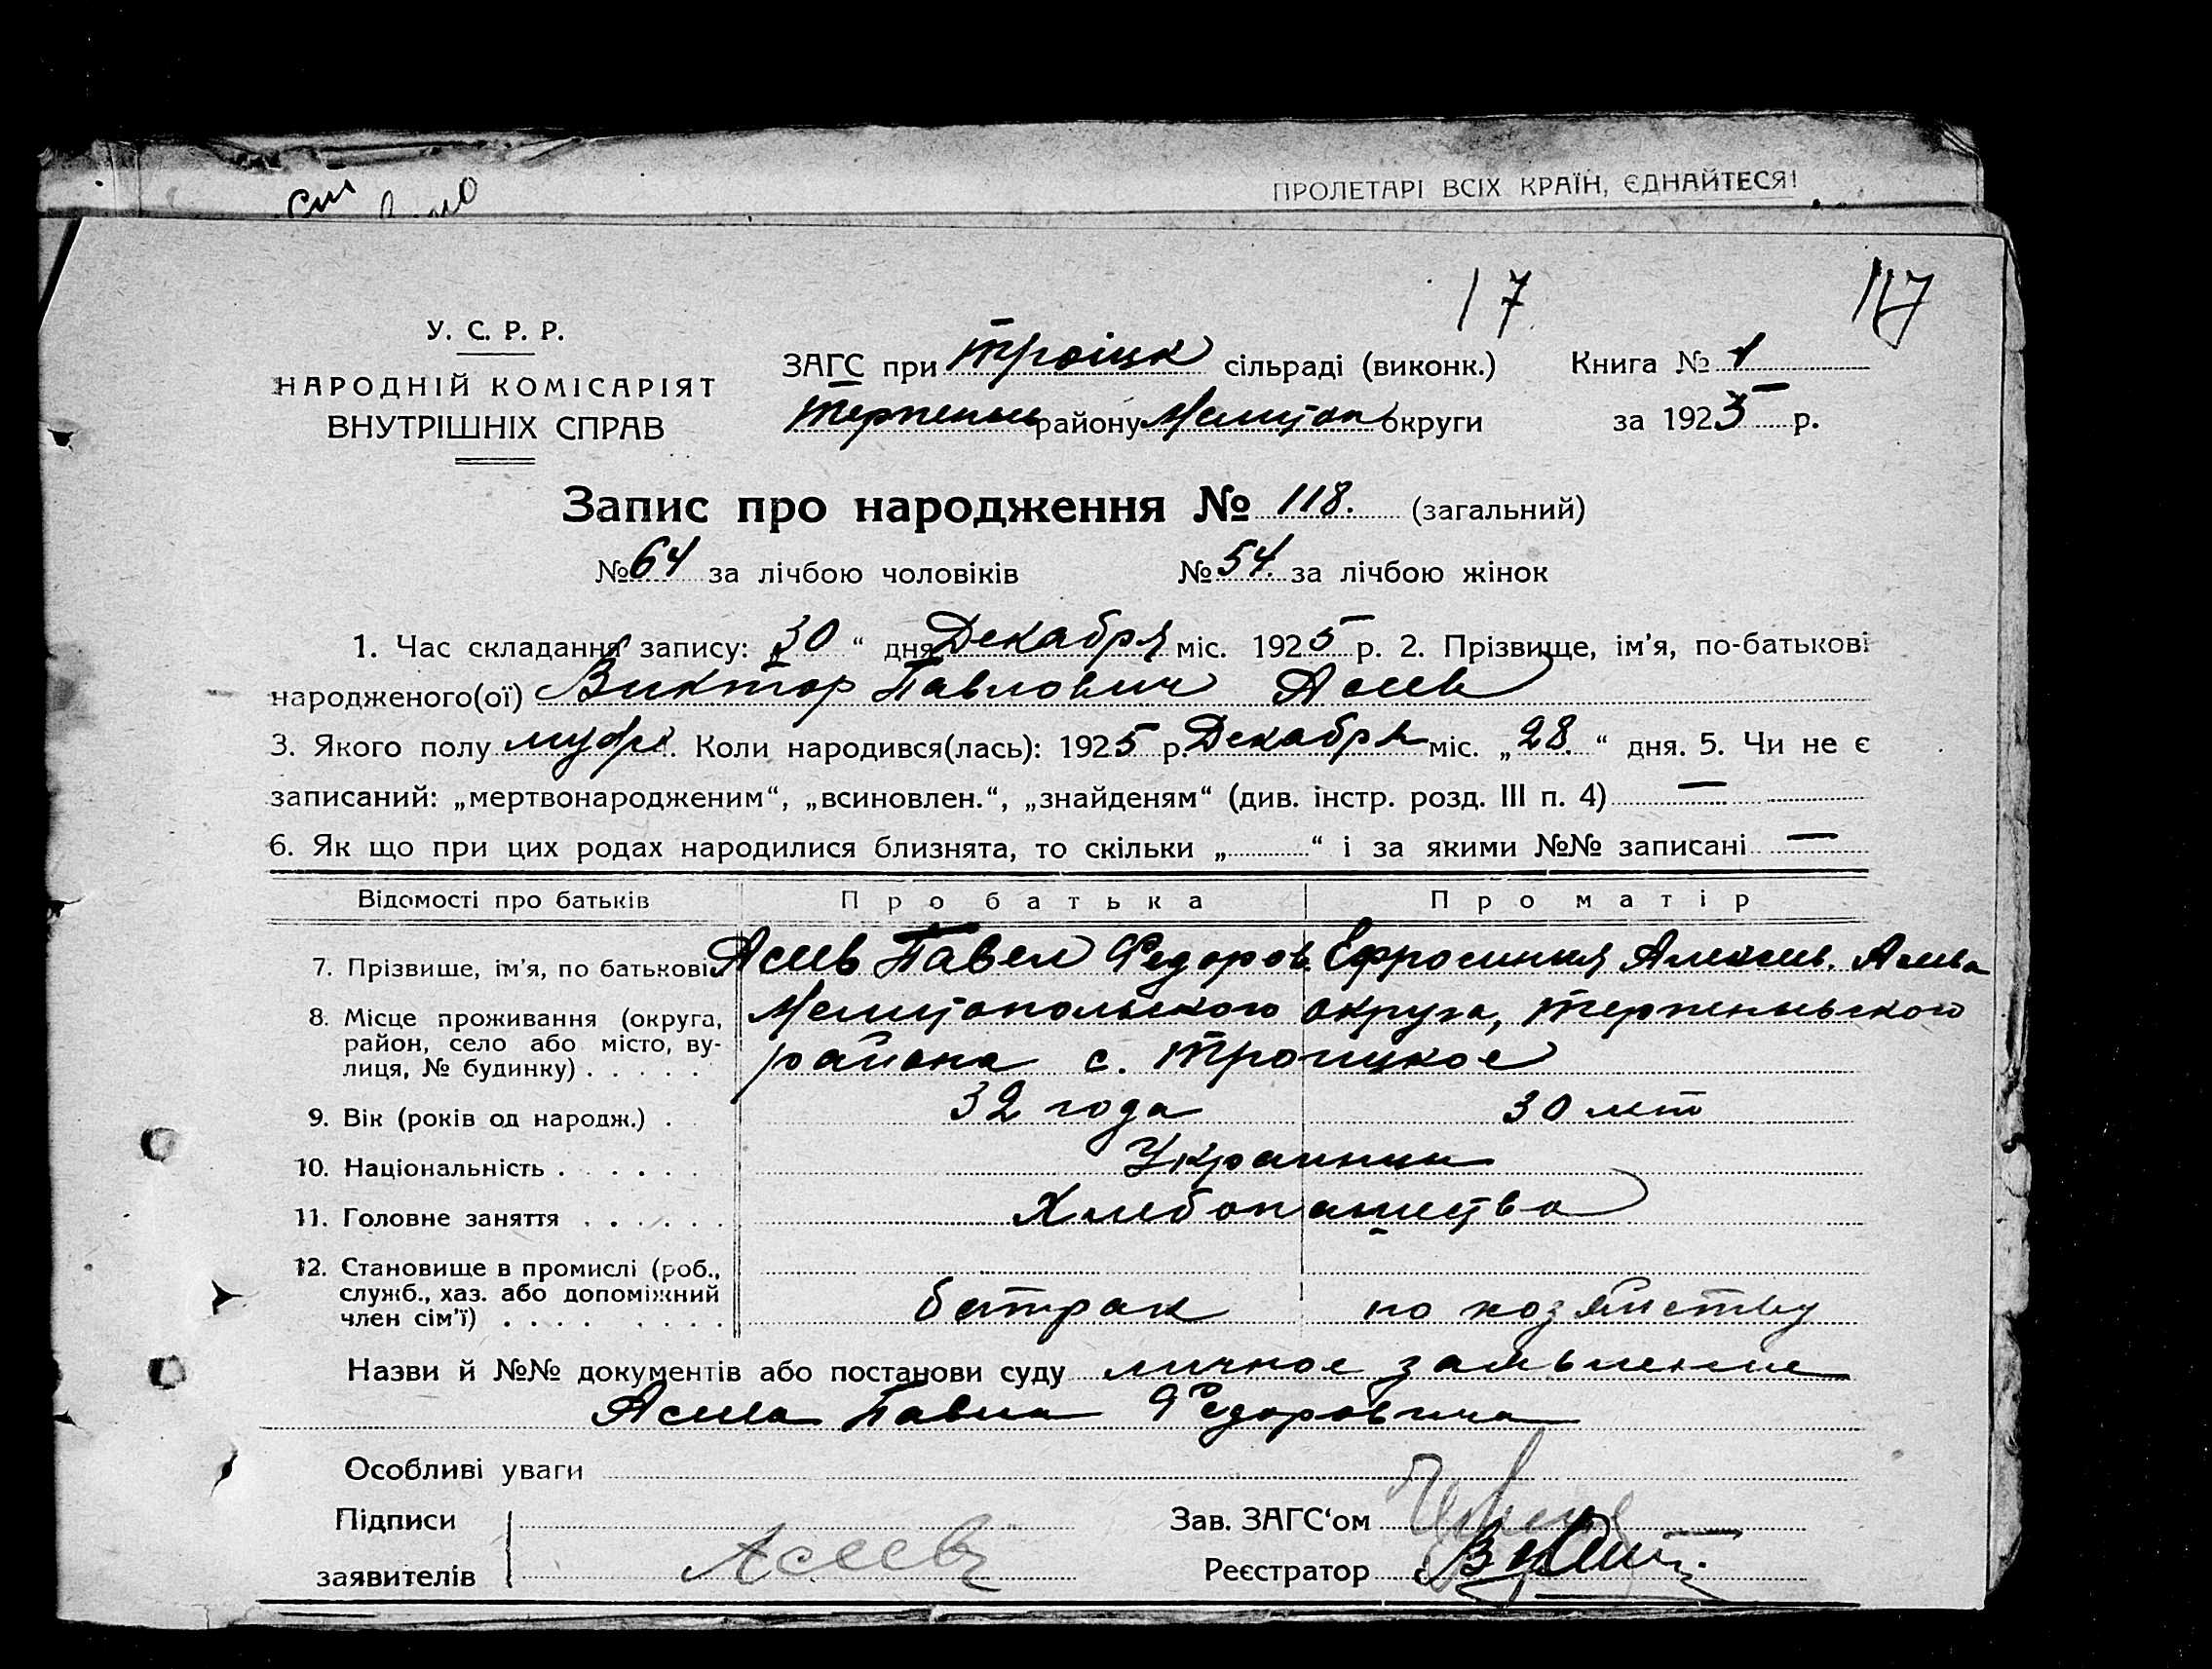 ПРОЛЕТАРІ ВСІХ КРАЇН, ЄДНАЙТЕСЯ!
17 117
У. С. Р. Р.
НАРОДНІЙ КОМІСАРІЯТ
ВНУТРІШНІХ СПРАВ
ЗАГС при Троіцк сільраді (виконк.) Книга № 1
Терпеньев району Мелитоп округи за 1925 р.
Запис про народження № 118. (загальний)
№ 64 за лічбою чоловіків № 54. за лічбою жінок
1. Час складання запису: „30“ дня Декабря міс. 1925 р. 2. Прізвище, ім'я, по-батькові
народженого(ої) Виктор Павлович Асеев
3. Якого полу муж. Коли народився(лась): 1925 р. Декабря міс. „28“ дня. 5. Чи не є
записаний: „мертвонародженим“, „всиновлен.“, „знайденям“ (див. інстр. розд. III п. 4) —
6. Як що при цих родах народилися близнята, то скільки „..........“ і за якими №№ записані —
Відомості про батьків Про батька Про матір
7. Прізвище, ім'я, по батькові Асеев Павел Федоров. Ефросиния Алексеев. Асеева
8. Місце проживання (округа, район, село або місто, вулиця, № будинку) Мелитопольского округа, Терпеньевского
района с. Троицкое
9. Вік (років од народж.) 32 года 30 лет
10. Національність Украинцы
11. Головне заняття Хлебопашество
12. Становище в промислі (роб.,
служб., хаз. або допоміжний
член сім'ї) батрак по хозяйству
Назви й №№ документів або постанови суду личное заявление
Асеева Павла Федоровича
Особливі уваги
Підписи Зав. ЗАГС'ом
заявителів Асеев Реєстратор